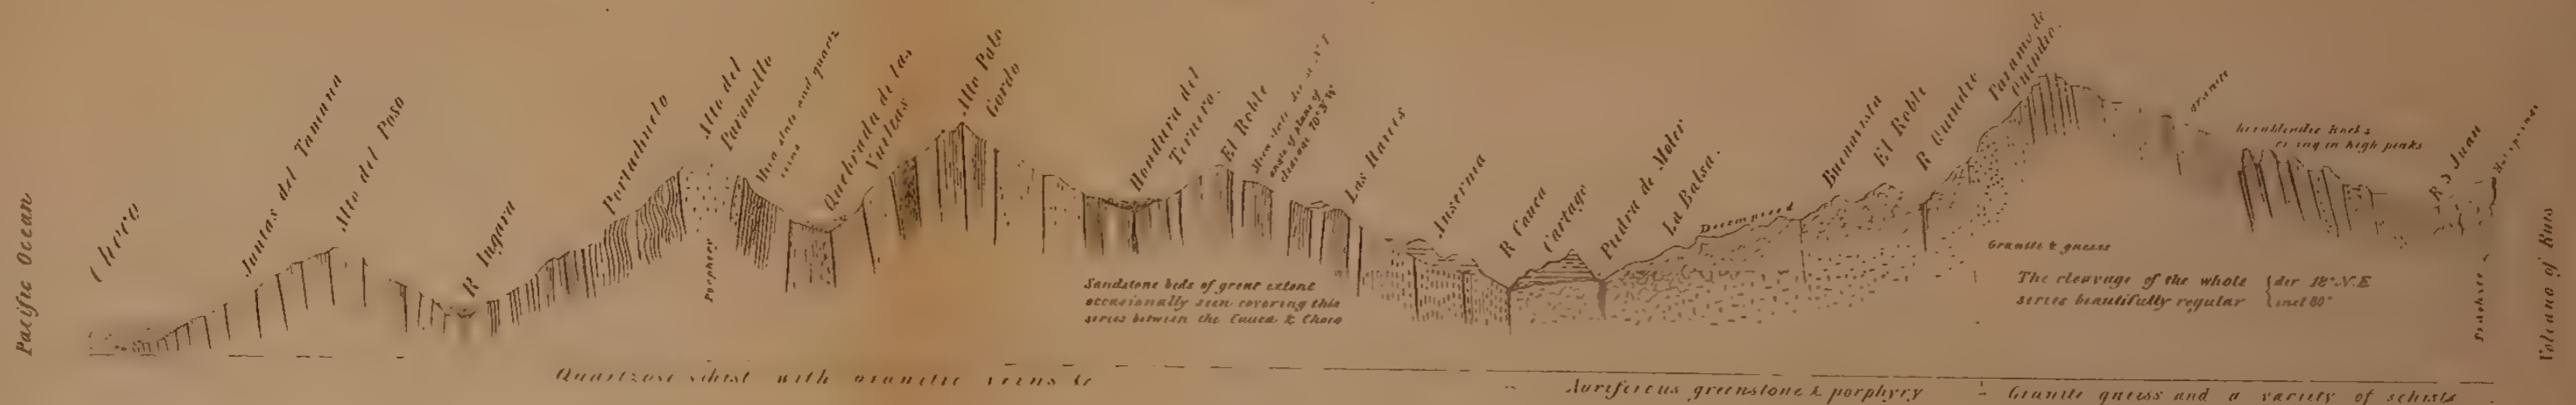 Pacific Ocean
Choco
Juntas del Tamana
Alto del Poso
R Ingara
Portachuelo
Alto del
Paramillo
Porphyry
Mica slate and quartz
veins
Quebrada de las
Vueltas
Alto Palo
Gordo
Hondura del
Ternero.
El Roble
Mica slate dir N F
angle of plane of
cleavage 70° N W
Las Raices
Sandstone beds of great extent
occasionally seen covering this
series between the Cauca & Choco
Anserma
R Cauca
Cartago
Piedra de Moler
La Balsa.
Decomposed
Buenavista
El Roble
R Quindio
Paramo de
Quindio.
granite
hornblendic Rocks
in high peaks
R S Juan
Granite & gneiss
The cleavage of the whole { dir 18° N.E
series beautifully regular { incl 80°
Volcano of Ruis
Quartzose schist with granitic veins &c
Auriferous greenstone & porphyry
Granite gneiss and a variety of schists